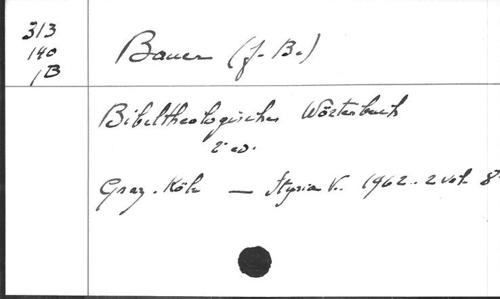 313
140
1B
Bauer (J. B.)
Bibeltheologisches Wörterbuch
2 ed.
Graz. Köln — Styria V. 1962. 2 vol. 8°